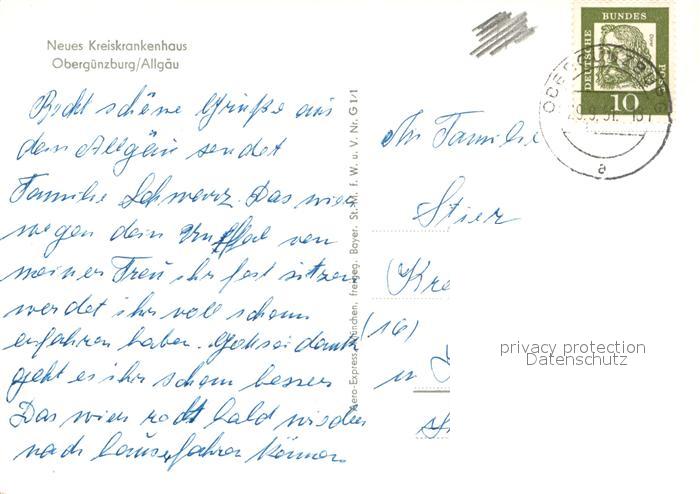 Neues Kreiskrankenhaus
Obergünzburg/Allgäu
Recht schöne Grüße aus
dem Allgäu sendet
Familie Schwarz. Das wir
wegen dem Unfall von
meiner Frau ihr fest sitzen
werdet ihr voll schon
erfahren haben. Gottseidank
geht es ihr schon besser
Das wir recht bald wieder
nach hause fahren können.
Aero-Express, München, freigeg. Bayer. St. M. f. W. u. V. Nr. G 1/1
An Familie
Stier
(Kre
(16)
in
DEUTSCHE
BUNDES
POST
10
OBERGÜNZBURG
a
privacy protection
Datenschutz